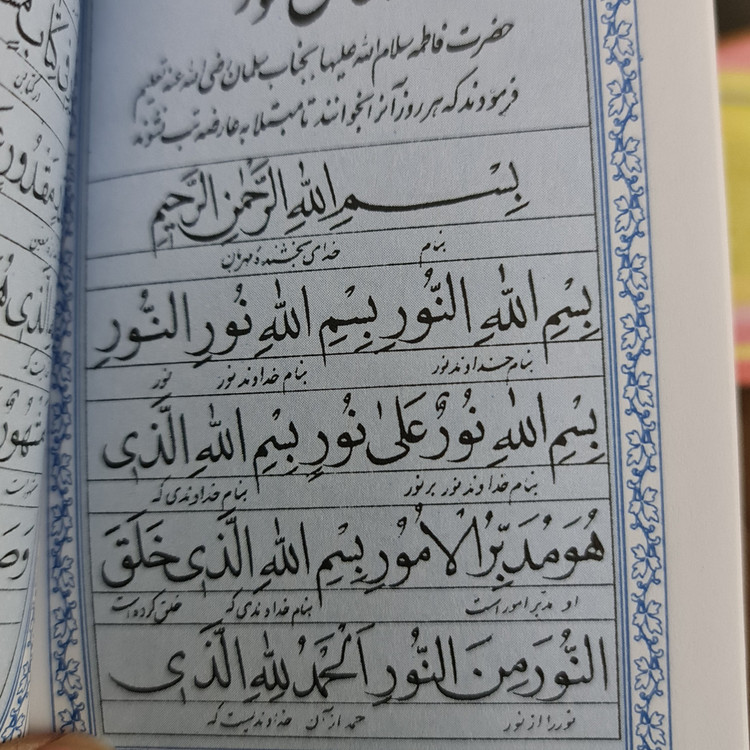 حضرت فاطمه سلام الله علیها بجناب سلمان رضی الله عنه تعلیم
فرمودند که هر روز آنرا بخوانند تا مبتلا به عارضه تب نشوند
بِسْمِ اللهِ الرَّحْمٰنِ الرَّحِیمِ
بنام خدای بخشندهٔ مهربان
بِسْمِ اللهِ النُّورِ بِسْمِ اللهِ نُورِ النُّورِ
بنام خداوند نور بنام خداوند نور نور
بِسْمِ اللهِ نُورٌ عَلىٰ نُورٍ بِسْمِ اللهِ الَّذِی
بنام خداوند نور بر نور بنام خداوندی که
هُوَ مُدَبِّرُ الْاُمُورِ بِسْمِ اللهِ الَّذِی خَلَقَ
او مدبّر امور است بنام خداوندی که خلق کرده است
النُّورَ مِنَ النُّورِ اَلْحَمْدُ لِلّٰهِ الَّذِی
نور را از نور حمد از آن خداوندیست که